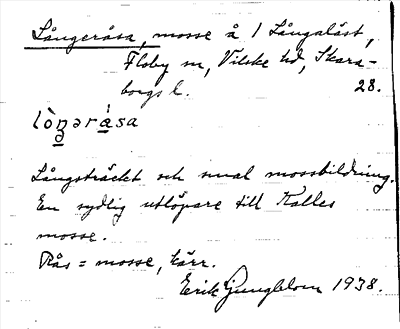 Långeråsa, mosse å 1 Långalöst,
Floby sn, Vilske hd, Skara-
borgs l. 28.
lòŋərása
Långsträckt och smal mossbildning.
En sydlig utlöpare till Kalles
mosse.
Rås = mosse, kärr.
Erik Ljungblom 1938.